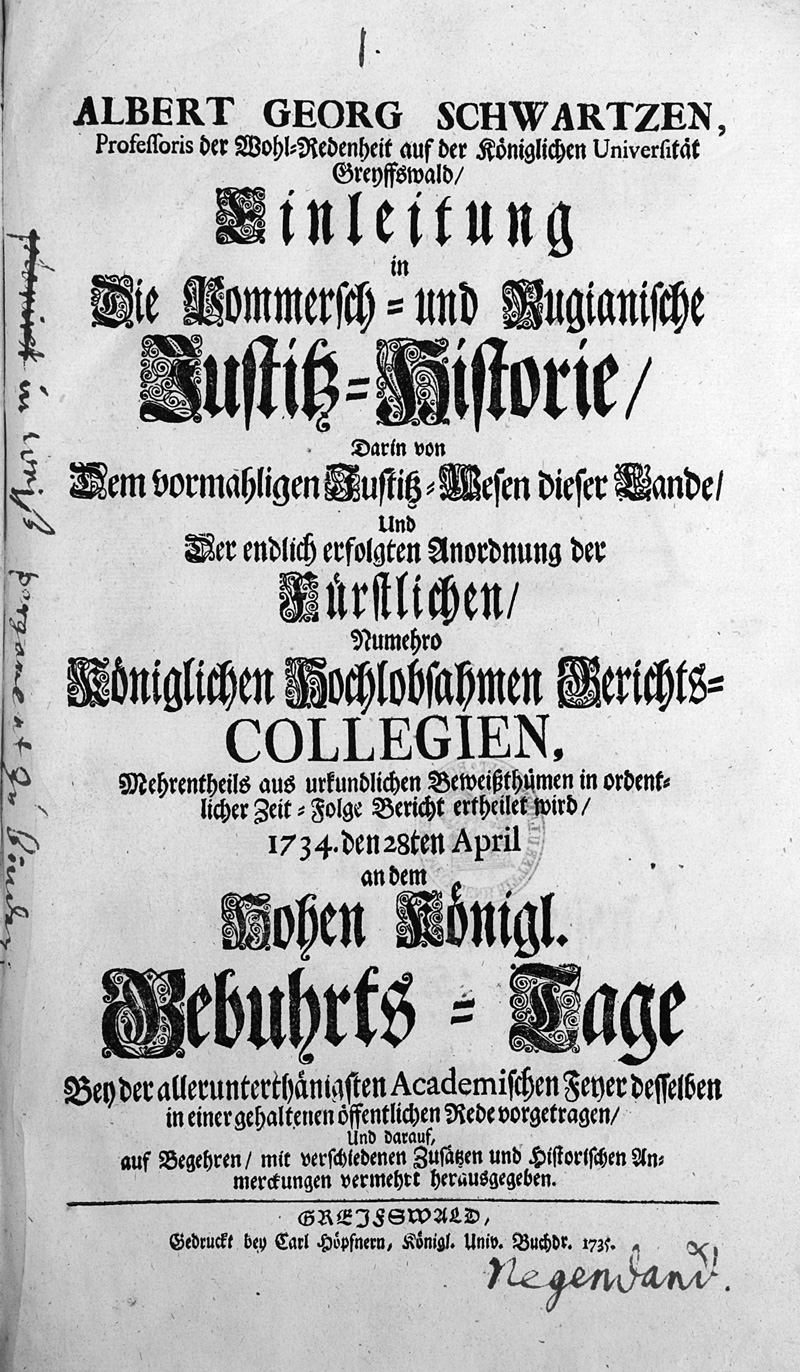 1.
ALBERT GEORG SCHWARTZEN,
Professoris der Wohl-Redenheit auf der Königlichen Universität
Greyffswald/
Einleitung
in
Die Pommersch- und Rugianische
Justitz-Historie/
Darin von
Dem vormahligen Justitz-Wesen dieser Lande/
Und
Der endlich erfolgten Anordnung der
Fürstlichen/
Numehro
Königlichen Hochlobsahmen Gerichts-
COLLEGIEN,
Mehrentheils aus urkundlichen Beweißthümen in ordent-
licher Zeit-Folge Bericht ertheilet wird/
1734. den 28ten April
an dem
Hohen Königl.
Gebuhrts-Tage
Bey der allerunterthänigsten Academischen Feyer desselben
in einer gehaltenen öffentlichen Rede vorgetragen/
Und darauf,
auf Begehren/ mit verschiedenen Zusätzen und Historischen An-
merckungen vermehrt herausgegeben.
GREIFSWALD,
Gedruckt bey Carl Höpfnern, Königl. Univ. Buchdr. 1735.
Negendand.
in weiß pergament zu binden